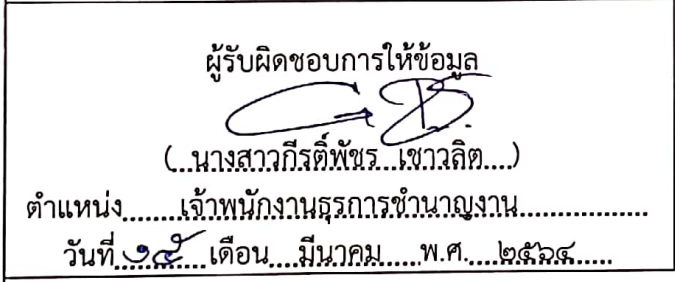 ผู้รับผิดชอบการให้ข้อมูล
(...นางสาวกีรติ์พัชร...เชาวลิต....)
ตำแหน่ง........เจ้าพนักงานธุรการชำนาญงาน..................
วันที่ ๑๕ เดือน....มีนาคม.....พ.ศ.....๒๕๖๔.....